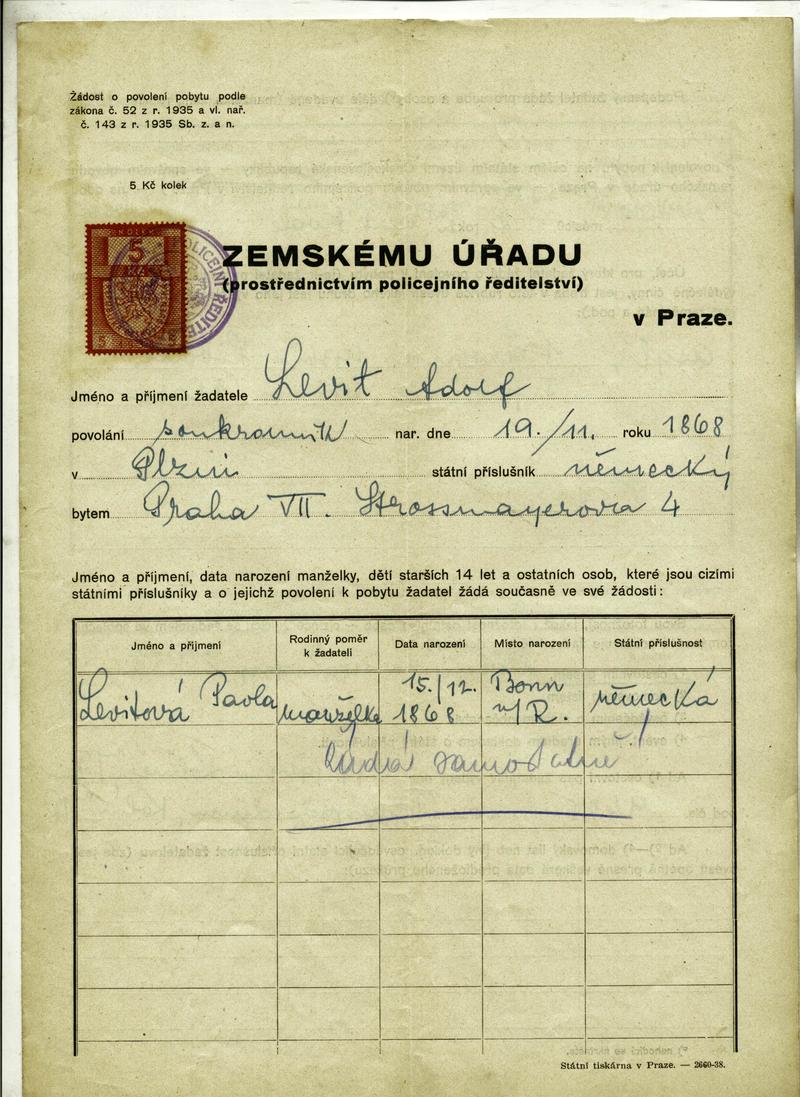 Žádost o povolení pobytu podle
zákona č. 52 z r. 1935 a vl. nař.
č. 143 z r. 1935 Sb. z. a n.
5 Kč kolek
KOLEK
5
POLICEJNÍ ŘEDITEL
ZEMSKÉMU ÚŘADU
(prostřednictvím policejního ředitelství)
v Praze.
Jméno a příjmení žadatele Levit Adolf
povolání soukromník nar. dne 19./11. roku 1868
v Plzni státní příslušník německý
bytem Praha VII. Strossmayerova 4
Jméno a příjmení, data narození manželky, dětí starších 14 let a ostatních osob, které jsou cizími
státními příslušníky a o jejichž povolení k pobytu žadatel žádá současně ve své žádosti:
Jméno a příjmení Rodinný poměr k žadateli Data narození Místo narození Státní příslušnost
Levitová Pavla manželka 15./12. 1868 Bonn n/R. německá
žádá samostatně
Státní tiskárna v Praze. — 2660-38.